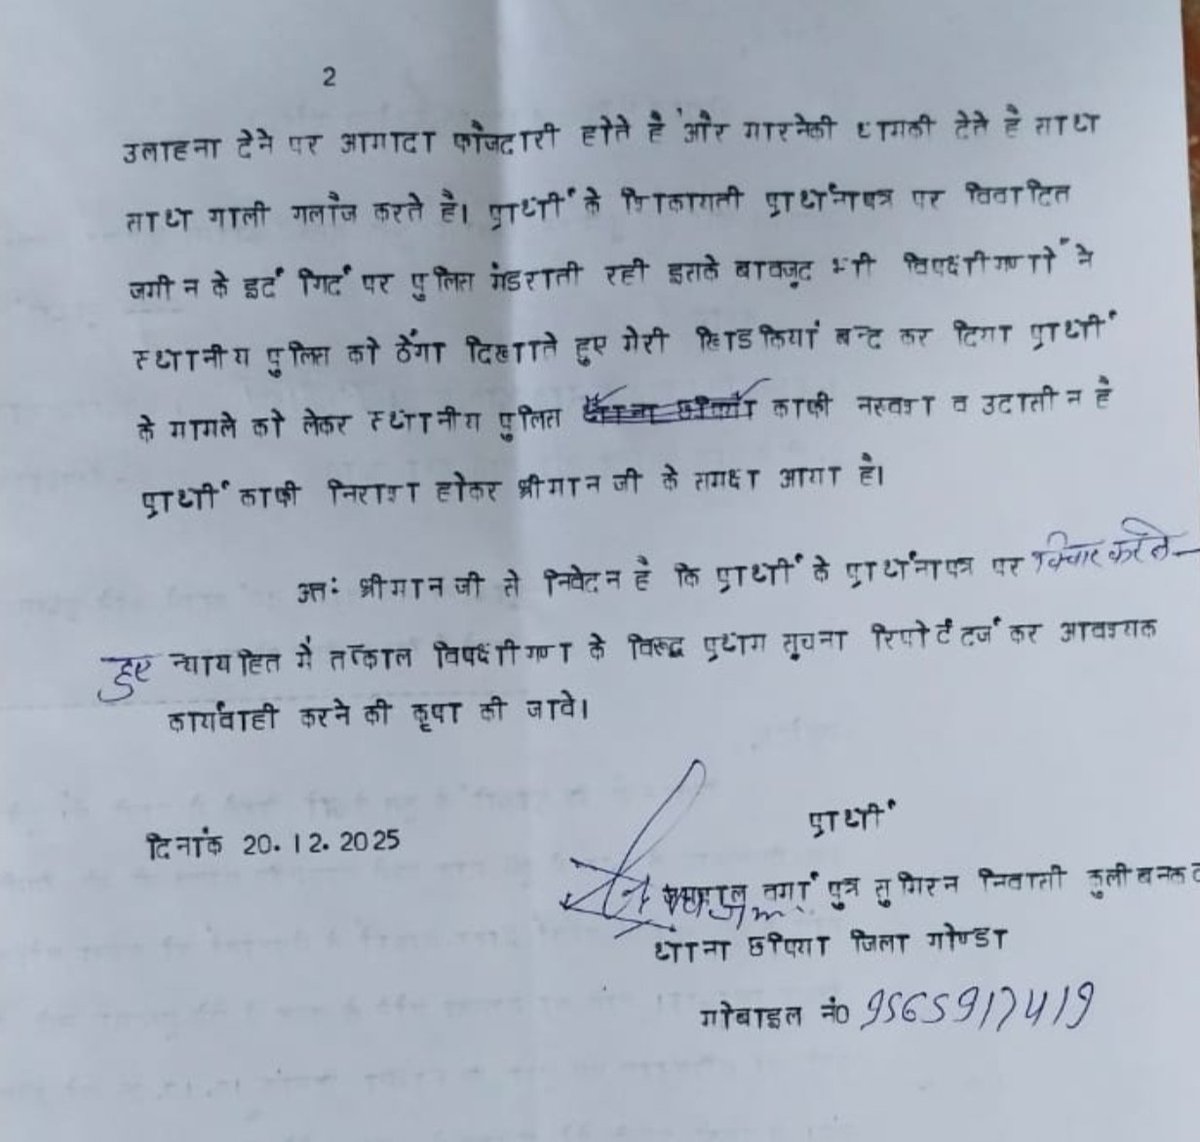 2
उलाहना देने पर आमादा फौजदारी होते है और मारनेकी धामकी देते है साथ
साथ गाली गलौज करते है। प्रार्थी के शिकायती प्रार्थनापत्र पर विवादित
जमीन के इर्द गिर्द पर पुलिस मंडराती रही इसके बावजूद भी विपक्षीगणों ने
स्थानीय पुलिस को ठेंगा दिखाते हुए मेरी खिडकियां बन्द कर दिया प्रार्थी
के मामले को लेकर स्थानीय पुलिस काफी नरवश व उदासीन है
प्रार्थी काफी निराश होकर श्रीमान जी के समक्ष आया है।
अतः श्रीमान जी से निवेदन है कि प्रार्थी के प्रार्थनापत्र पर विचार करते
हुए न्यायहित मैं तत्काल विपक्षीगण के विरूद्ध प्रथाम सूचना रिपोर्ट दर्ज कर आवश्यक
कार्यवाही करने की कृपा की जावे।
दिनांक 20.12.2025
प्रार्थी
वर्मा पुत्र सुमिरन निवासी
थाना छपिया जिला गोण्डा
मोबाइल नं0 9565917419